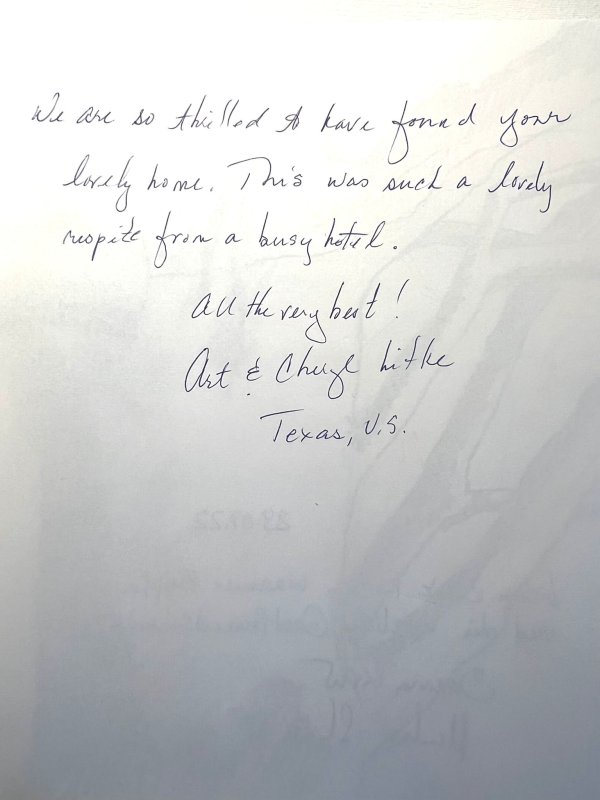 We are so thrilled to have found your
lovely home. This was such a lovely
respite from a busy hotel.
All the very best!
Art & Cheryl Lifke
Texas, U.S.